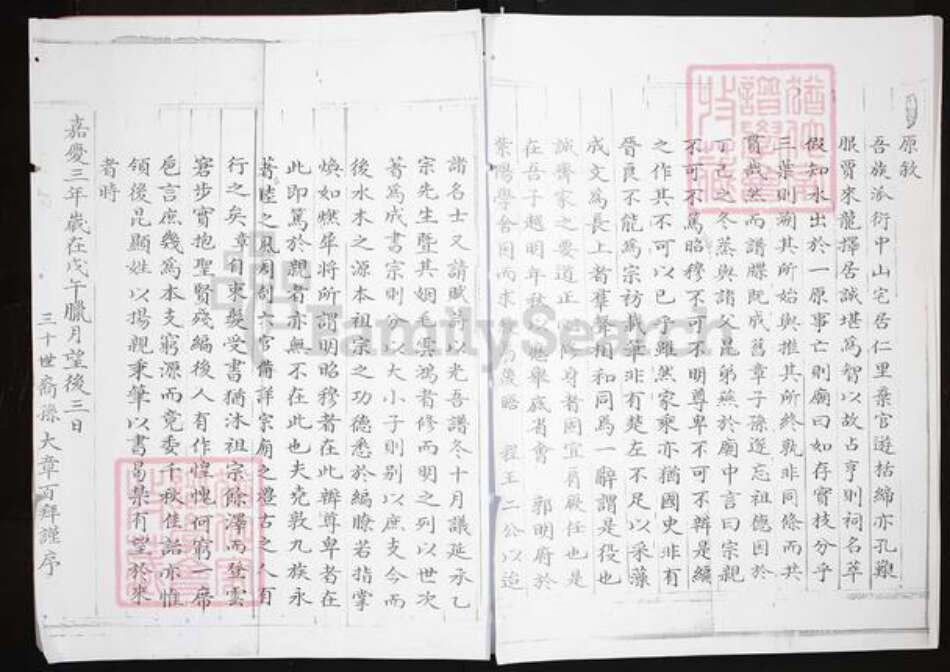 原敘
吾族派衍中山宅居仁里棄官遊括締亦孔艱
眼賈來龍擇居誠堪為智以故占亨則祠名萃
假知水出於一原事亡則廟曰如存實枝分乎
三葉則溯其所始與推其所終孰非同條而共
貫哉然而譜牒既成舊章子孫遂忘祖德因於
丁巳之冬蒸與諸父昆弟燕於廟中言曰宗親
不可不篤昭穆不可不明尊卑不可不辨是編
之作其不可以已乎雖然家乘亦猶國史非有
晉良不能為宗祊哉筆非有楚左不足以采藻
成文為長上者羣聲相和同為一辭謂是役也
誠齊家之要道正修身者國宜有厥任也是
在吾子越明年秋應舉底省會郭明府於
紫陽學舍因而求序後晤程王二公以迨
諸名士又請賦詩以光吾譜冬十月議延承乙
宗先生暨其姻毛雲鴻者修而明之列以世次
著為成書宗則分以大小子則别以庶支今而
後水木之源本祖宗之功德悉於編瞻若指掌
煥如燃犀將所謂明昭穆者在此辨尊卑者在
此即篤於親者亦無不在此也夫堯敦九族永
著陸之風周制六官備詳宗廟之禮古之人有
行之矣章自束髮受書猶沐祖宗餘澤而登雲
窘步實抱聖賢殘編後人有作惶愧何窮一席
巵言庶幾為本支窮源而竟委千秋佳話亦惟
領後昆顯姓以揚親秉筆以書昜棐有望於來
者時
嘉慶三年歲在戊午臘月望後三日
三十世裔孫大章百拜謹序
FamilySearch